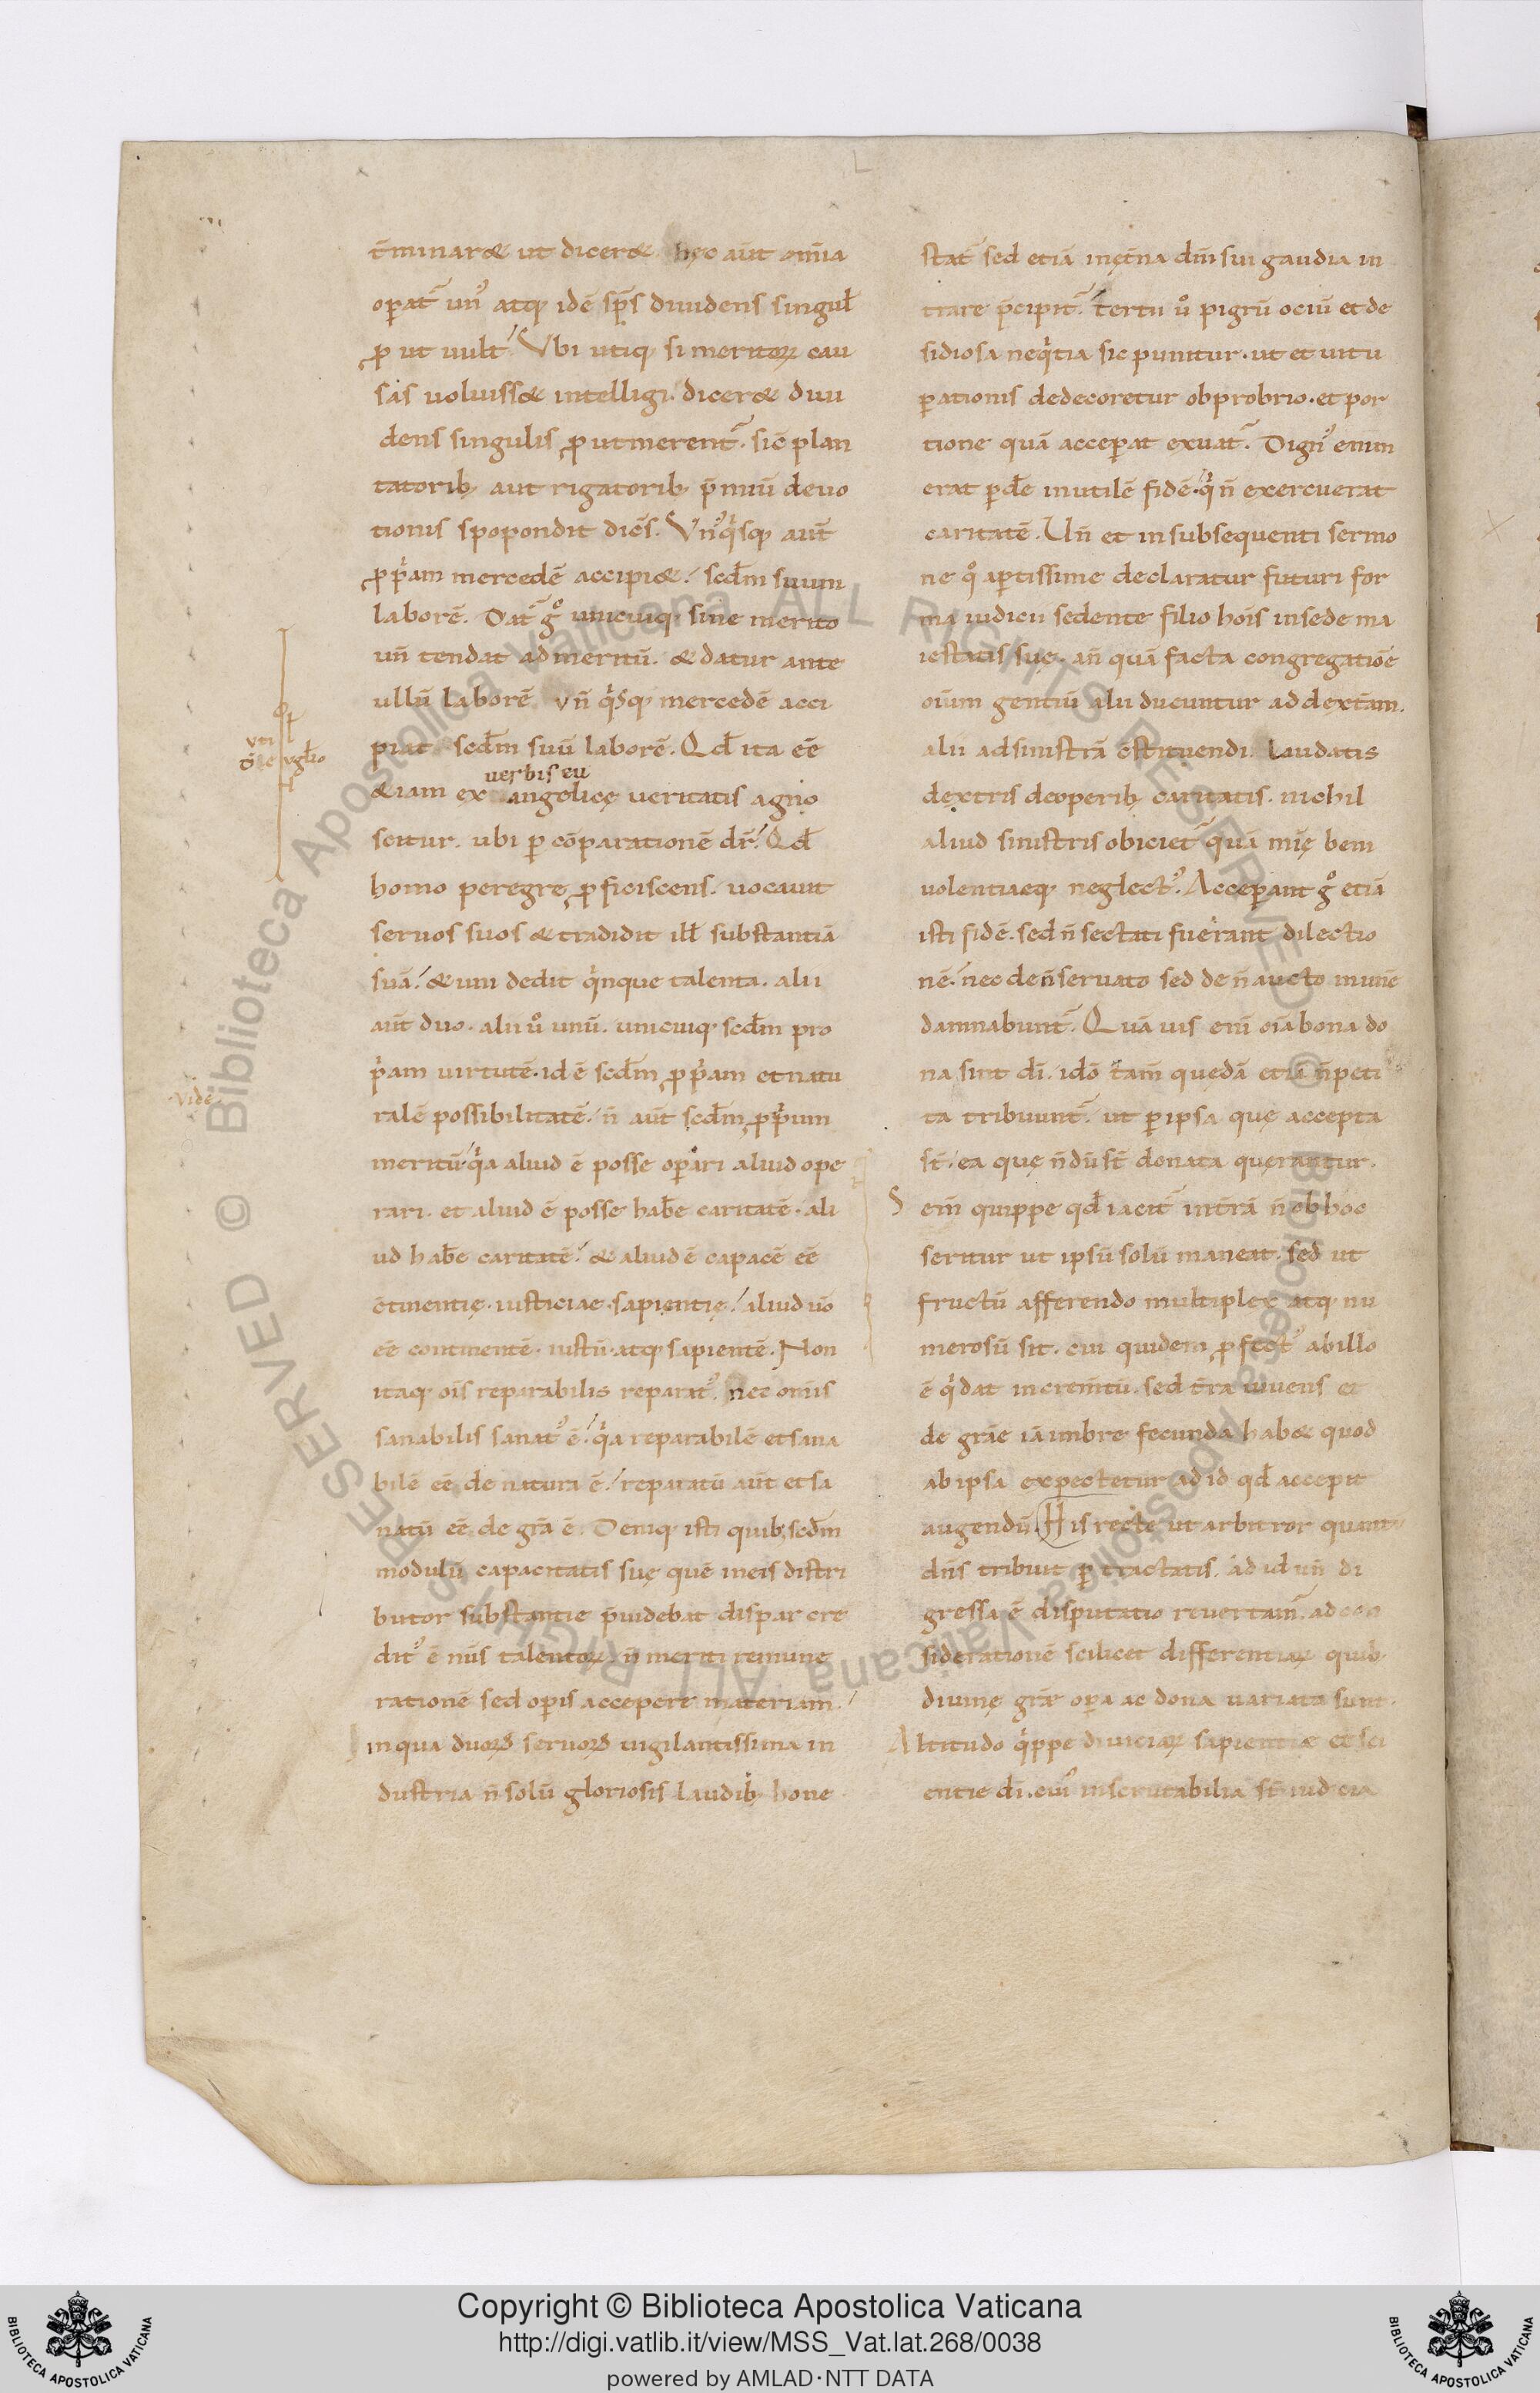 t̄minar& ut dicer& hęc aūt om̄ia
operat᷑ un᷒ atq; idē sp̄s diuidens singul̄
ꝓ ut uult. Vbi utiq; si meritoꝝ cau
sas uoluiss& intelligi. dicer& diui
dens singulis ꝓ ut merent᷑. sic̄ plan
tatorib; aut rigatorib; p̄miū deuo
tionis spopondit dic̄s. Vn᷒qⁱsq; aut̄
ꝓpⁱam mercedē accipi&. sc̄dm suum
laborē. Dat᷑ gͦ unicuiq; sine merito
un̄ tendat ad meritū. & datur ante
ullū laborē un̄ qⁱsq; mercedē acci
piat sc̄dm suū laborē. Qd̄ ita eē
verbis eu
&iam ex angelicę ueritatis agno
scitur. ubi ꝑ cōparationē dr̄. Qd̄
homo peregre ꝓficiscens. uocauit
seruos suos & tradidit ill̄ substantiā
suā. & uni dedit qⁱnque talenta. alii
aūt duo. alii uͦ unū. unicuiq; sc̄dm pro
pⁱam uirtutē. id ē sc̄dm ꝓpⁱam et natu
ralē possibilitatē. n̄ aūt sc̄dm ꝓpⁱum
meritū. qⁱa aliud ē posse oꝑari aliud ope
rari. et aliud ē posse hab̄e caritatē. ali
ud hab̄e caritatē. & aliud ē capacē eē
c̄tinentię. iusticiae. sapientię. aliud uō
eē continentē. iustū. atq; sapientē. Non
itaq; ois̄ reparabilis reparat᷒. nec om̄is
sanabilis sanat᷒ ē. qⁱa reparabilē et sana
bilē eē de natura ē. reparatū aūt et sa
natū eē de grā ē. Deniq; isti quib; sc̄dm
modulū capacitatis suę quē in eis distri
butor substantie p̄uidebat dispar cre
dit᷒ ē nūs talentoꝝ n̄ meriti remune
rationē sed oꝑis accepere materiam.
In qua duoꝝ seruoꝝ uigilantissima in
dustria n̄ solū gloriosis laudib; hone
stat᷑ sed etiā in ęt̄na dn̄i sui gaudia in
trare p̄cipit᷑. tertii uͦ pigrū ociū et de
sidiosa neqⁱtia sic punitur. ut et uitu
ꝑationis dedecoretur obprobrio. et por
tione quā acceꝑat exuat᷑. Dign᷒ enim
erat ꝑd̄e inutilē fidē. qⁱ n̄ exercuerat
caritatē. Un̄ et in subsequenti sermo
ne qͦ aꝑtissime declaratur futuri for
ma iudicii sedente filio hois̄ in sede ma
iestatis suę. an̄ quā facta congregatiōe
oiūm gentiū alii ducuntur ad dext̄am.
alii ad sinistrā c̄stituendi. Laudatis
dextris de operib; caritatis. nichil
aliud sinistris obiciet᷑ quā mię beni
uolentiaeq; neglect᷒. Acceꝑant gͦ etiā
isti fidē. sed n̄ sectati fuerant dilectio
nē. nec de n̄ seruato sed de n̄ aucto mun̄e
damnabunt᷑. Quā uis eni᷑ oīa bona do
na sint di᷑. idō tam̄ quędā etiā n̄ peti
ta tribuunt᷑. ut ꝑ ipsa quę accepta
st̄. ea quę n̄dū st̄ donata quęrantur.
Sem̄ quippe qd̄ iacit᷑ in t̄rā n̄ ob hoc
seritur ut ipsū solū maneat. sed ut
fructū afferendo multiplex atq; nu
merosū sit. cui quidem ꝓfect᷒ ab illo
ē qⁱ dat increm̄tū. sed t̄ra uiuens et
de grāe iā imbre fecunda hab& quod
ab ipsa expectetur ad id qd̄ accepit
augendū. His recte ut arbitror quant
dn̄s tribuit ꝑtractatis. ad id un̄ di
gressa ē disputatio reuertam᷒. ad con
siderationē scilicet differentiaꝝ quib;
diuinę grāe oꝑa ac dona uariata sunt.
Altitudo qⁱppe diuiciaꝝ sapientiæ et sci
entie di᷑. cui᷒ inscrutabilia st̄ iudicia
vidē
Copyright © Biblioteca Apostolica Vaticana
http://digi.vatlib.it/view/MSS_Vat.lat.268/0038
powered by AMLAD·NTT DATA